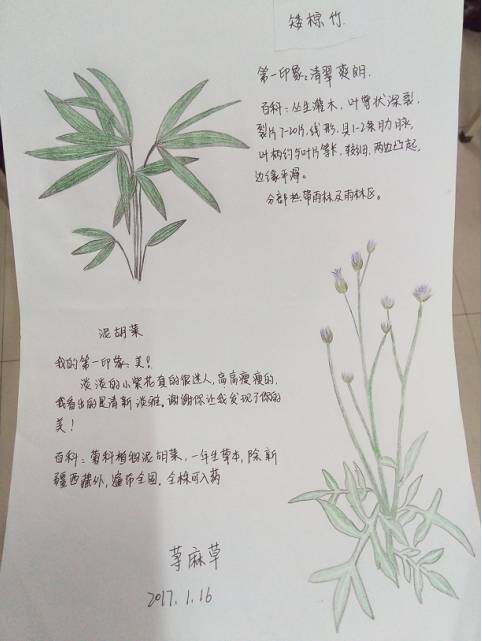 矮棕竹
第一印象：清翠爽朗。
百科：丛生灌木，叶掌状深裂，
裂片7-20片，线形，具1-2条肋脉，
叶柄约与叶片等长，较细，两边凸起，
边缘平滑。
分部热带雨林及雨林区。
泥胡菜
我的第一印象：美！
淡淡的小紫花真的很迷人，高高瘦瘦的，
我看出的是清新淡雅。谢谢你让我发现了你的
美！
百科：菊科植物泥胡菜，一年生草本，除新
疆西藏外，遍布全国。全株可入药
荨麻草
2017.1.16